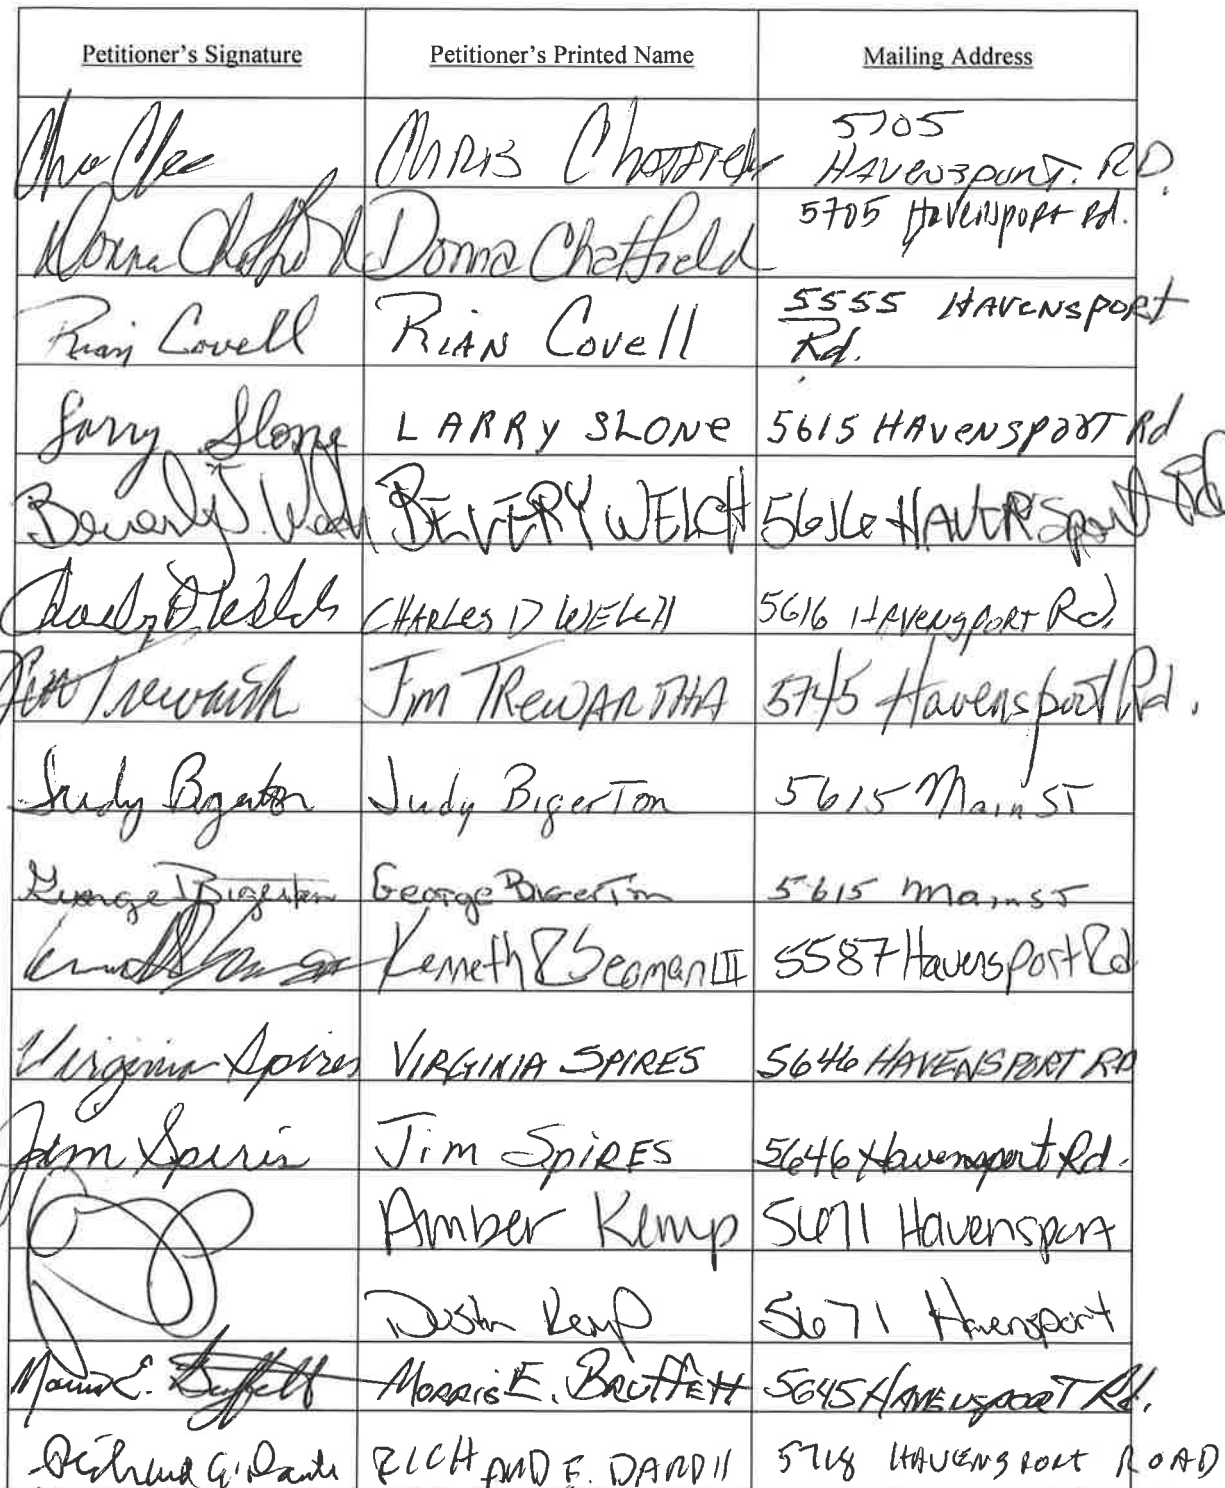 Petitioner's Signature Petitioner's Printed Name Mailing Address
CHRIS 5705
HAVENSPORT. RD.
Donna Chatfield Donna Chatfield 5705 Havensport Rd.
Rian Covell RIAN Covell 5555 HAVENSPORT
Rd.
Larry Slone LARRY SLONE 5615 HAVENSPORT Rd
Beverly J. Welch BEVERY WELCH 5616 HAVENSport Rd
Charles D Welch CHARLES D WELCH 5616 HAVENSPORT Rd.
Jim Trewartha Jim TREWARTHA 5745 Havensport Rd.
Judy Bigerton Judy BigerTon 5615 Main ST
George Bigerton George BigerTon 5615 Main ST
Kenneth Seaman III 5587 Havensport Rd
Virginia Spires VIRGINIA SPIRES 5646 HAVENSPORT RD
Jim Spires Jim SPIRES 5646 Havensport Rd.
Amber Kemp 5671 Havensport
Dustin Kemp 5671 Havensport
Morris E. MORRIS E. 5645 HAVENSPORT Rd.
HAVENSPORT ROAD